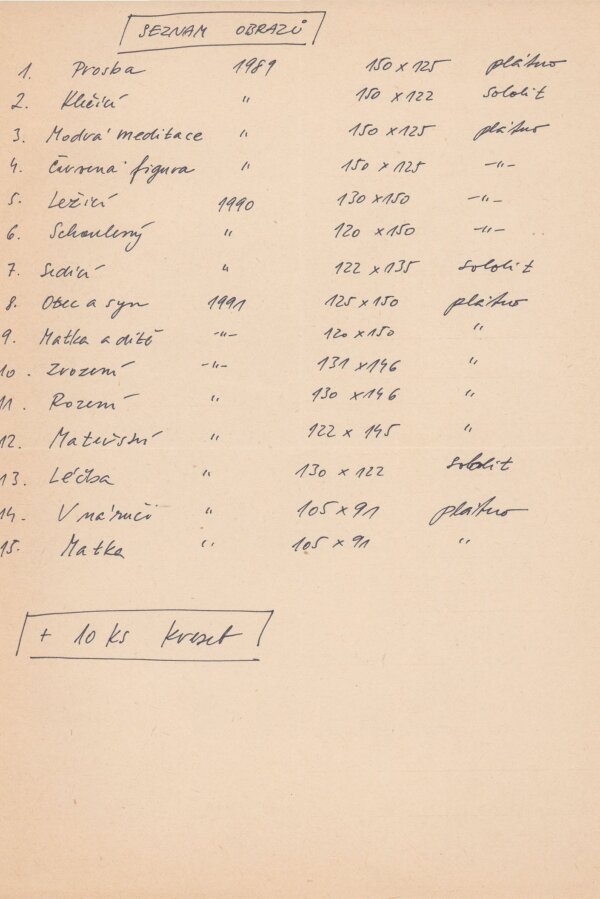 SEZNAM OBRAZŮ
1. Prosba 1989 150 x 125 plátno
2. Klečící " 150 x 122 sololit
3. Modrá meditace " 150 x 125 plátno
4. Červená figura " 150 x 125 -"-
5. Ležící 1990 130 x 150 -"-
6. Schoulený " 120 x 150 -"-
7. Sedící " 122 x 135 sololit
8. Otec a syn 1991 125 x 150 plátno
9. Matka a dítě -"- 120 x 150 "
10. Zrození -"- 131 x 146 "
11. Rození " 130 x 146 "
12. Mateřství " 122 x 145 "
13. Léčba " 130 x 122 sololit
14. V náručí " 105 x 91 plátno
15. Matka " 105 x 91 "
+ 10 ks kreseb